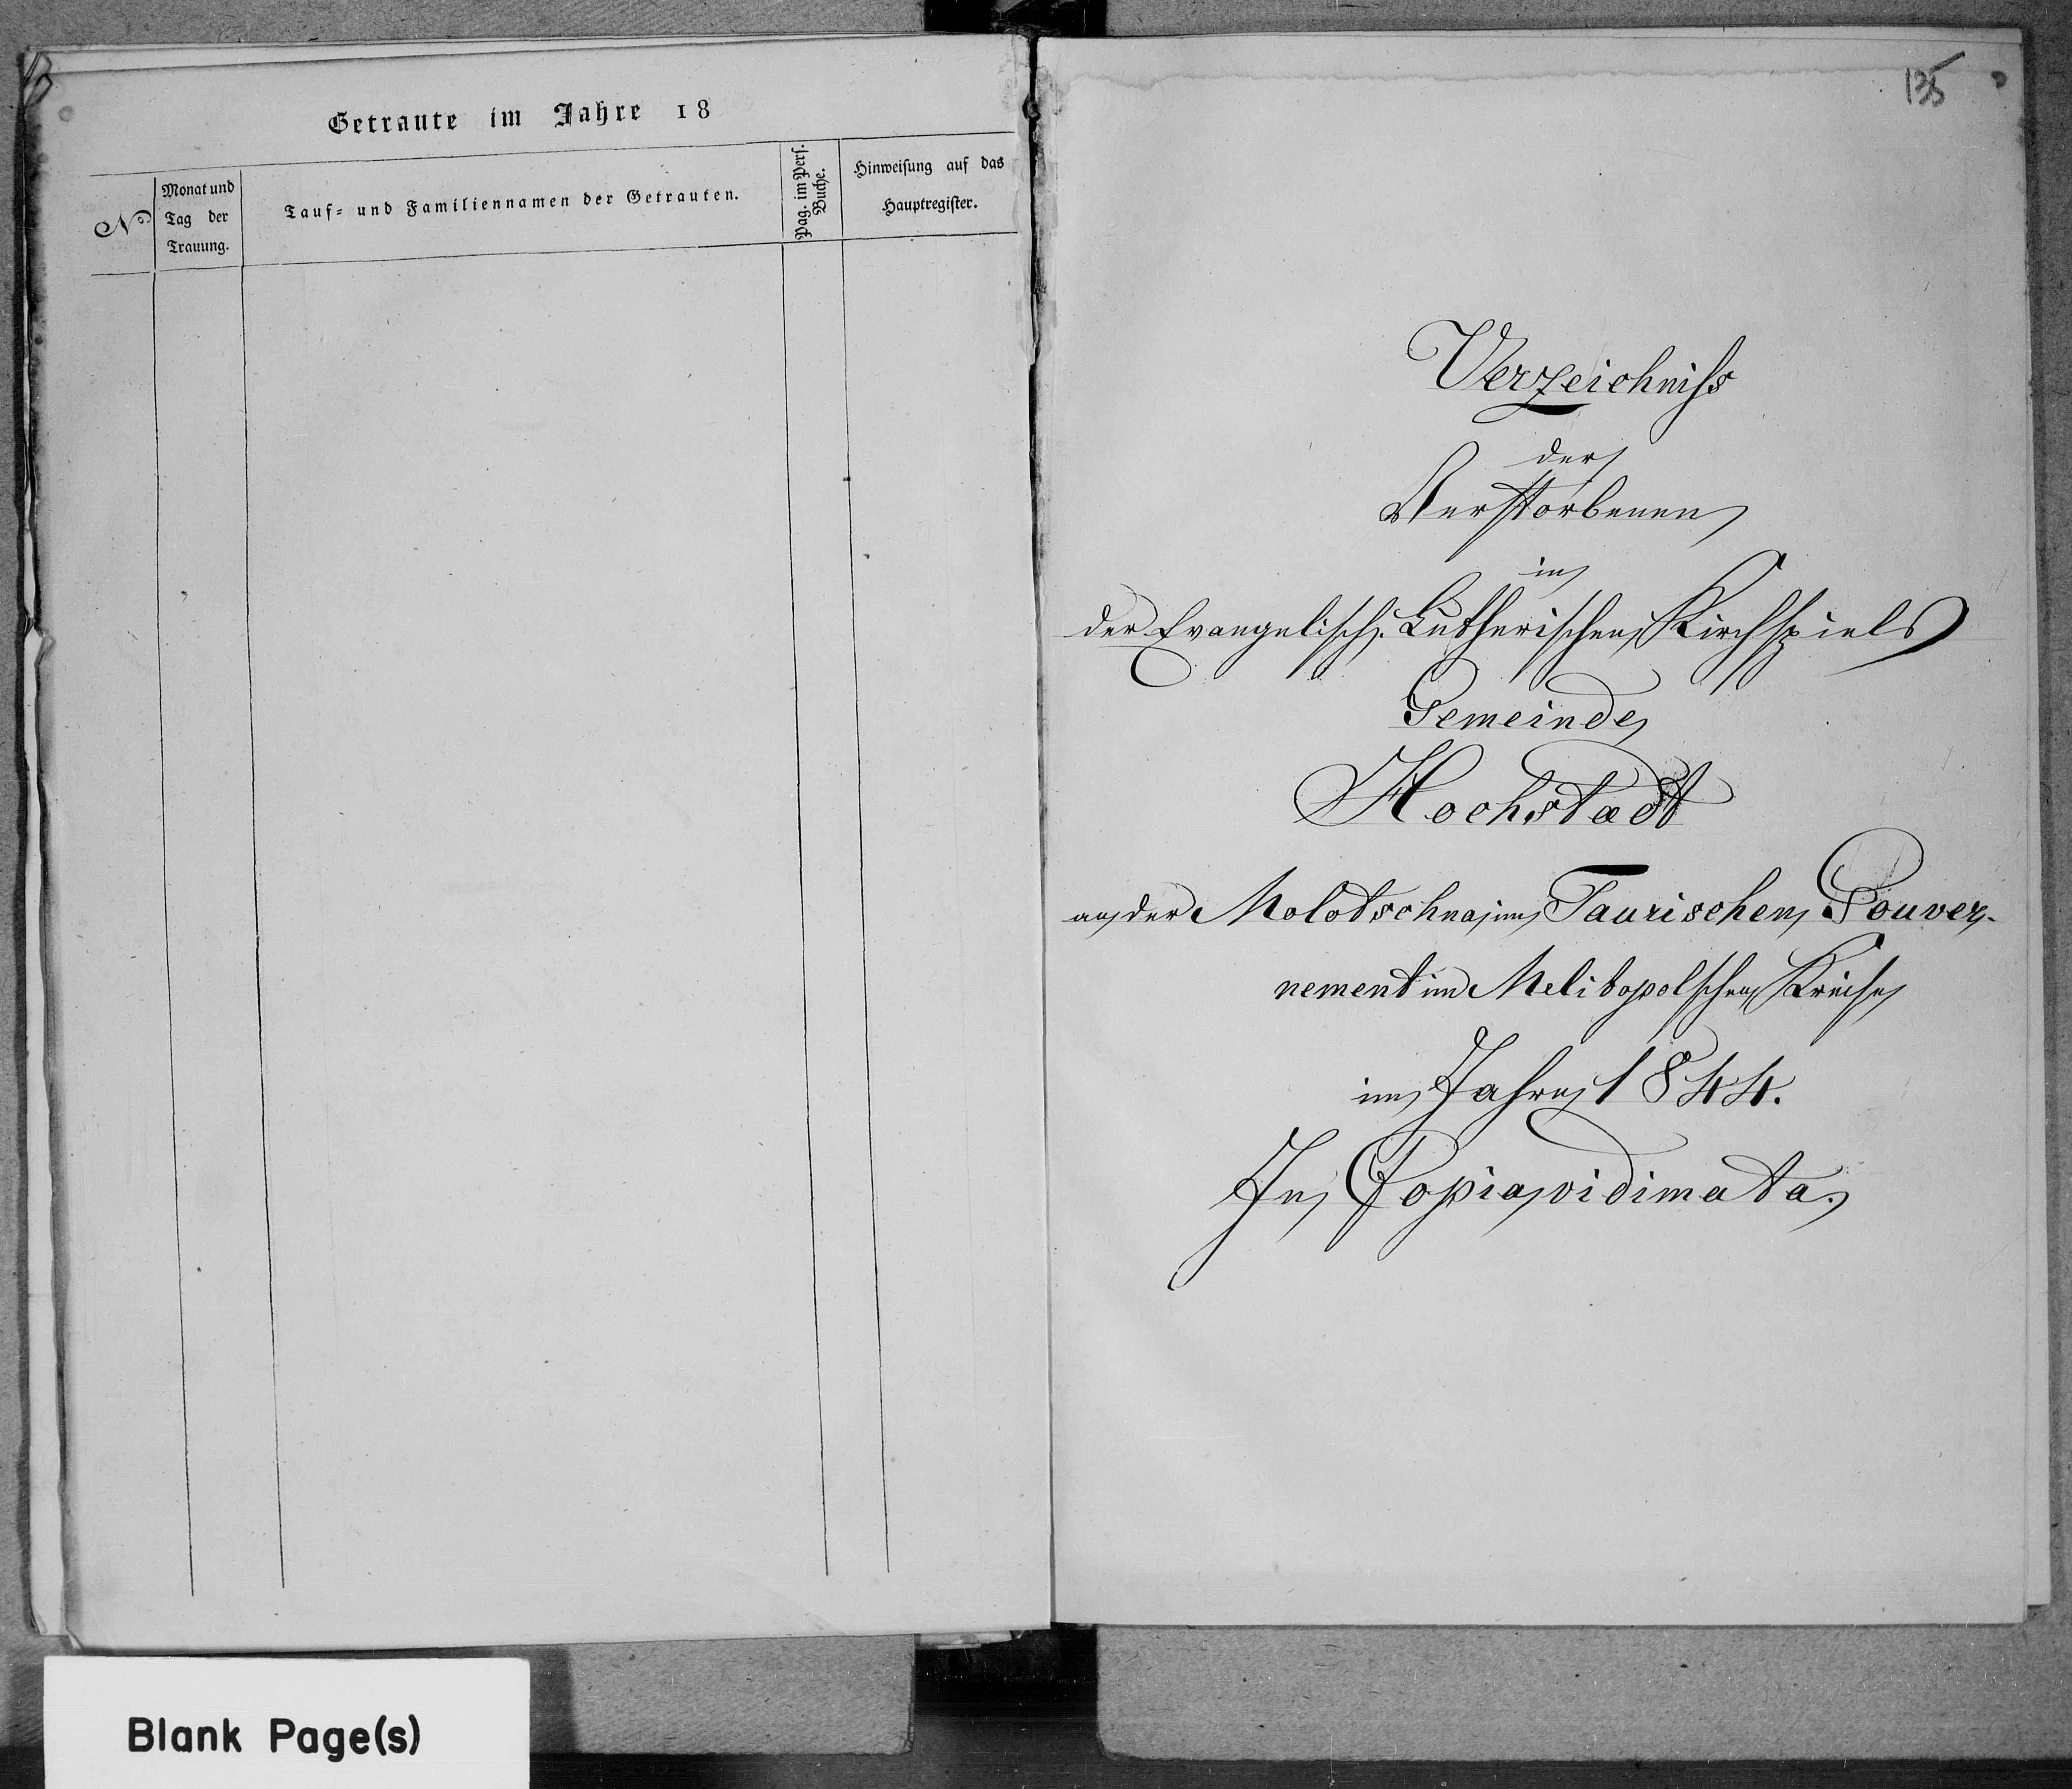 Getraute im Jahre 18
№
Monat und
Tag der
Trauung.
Tauf= und Familiennamen der Getrauten.
Pag. im Pers.
Buche.
Hinweisung auf das
Hauptregister.
135
Verzeichniss
der
Verstorbenen
in
der Evangelisch-Lutherischen Kirchspiels
Gemeinde
Hochstädt
an der Molotschna im Taurischen Gouver-
nement im Melitopolschen Kreise
im Jahre 1844.
In Copia vidimata.
Blank Page(s)